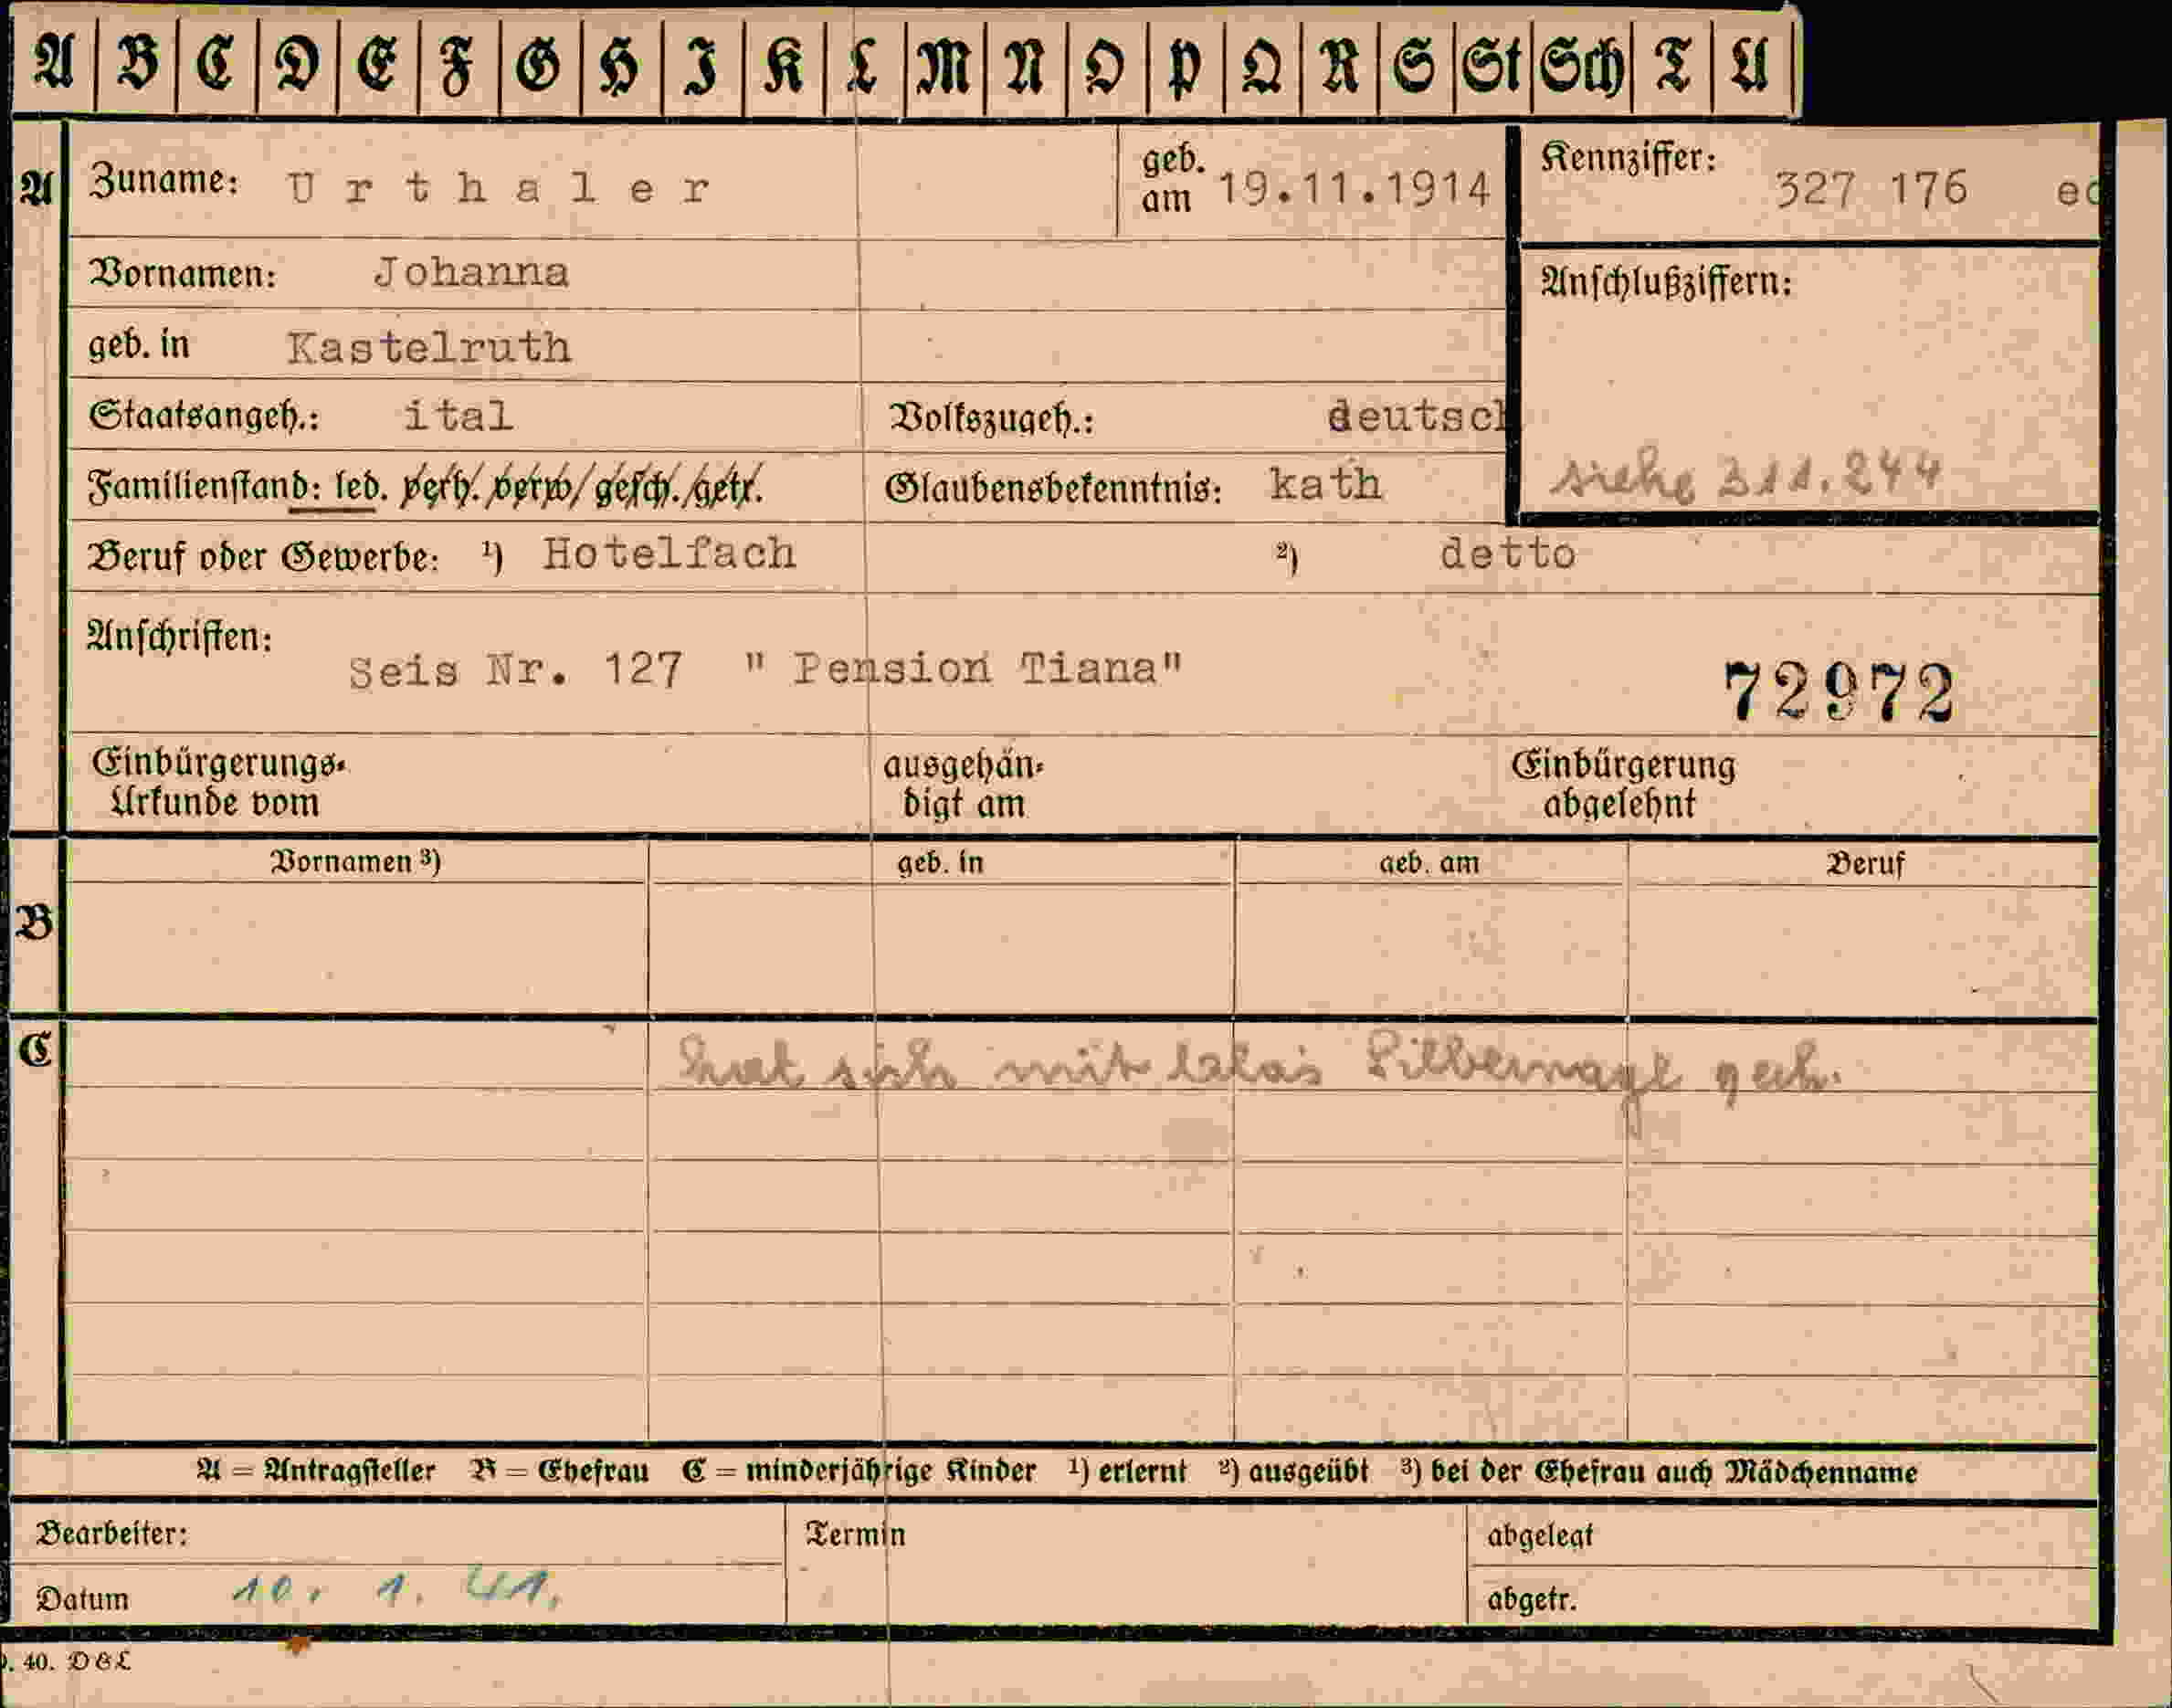 A B C D E F G H I K L M N O P Q R S St Sch T U
A Zuname: Urthaler geb. am 19.11.1914 Kennziffer: 327 176
Vornamen: Johanna
Anschlußziffern:
geb. in Kastelruth
Staatsangeh.: ital Volkszugeh.: deutsch
Familienstand: led. verh. verw/ gesch./getr. Glaubensbekenntnis: kath
siehe 311.244
Beruf oder Gewerbe: ¹) Hotelfach ²) detto
Anschriften:
Seis Nr. 127 " Pension Tiana"
72972
Einbürgerungs-
Urkunde vom
ausgehän-
digt am
Einbürgerung
abgelehnt
Vornamen ³) geb. in geb. am Beruf
B
C hat sich mit Silbernagl
A = Antragsteller B = Ehefrau C = minderjährige Kinder ¹) erlernt ²) ausgeübt ³) bei der Ehefrau auch Mädchenname
Bearbeiter: Termin abgelegt
Datum 10. 1. 41. abgetr.
. 40. D&L